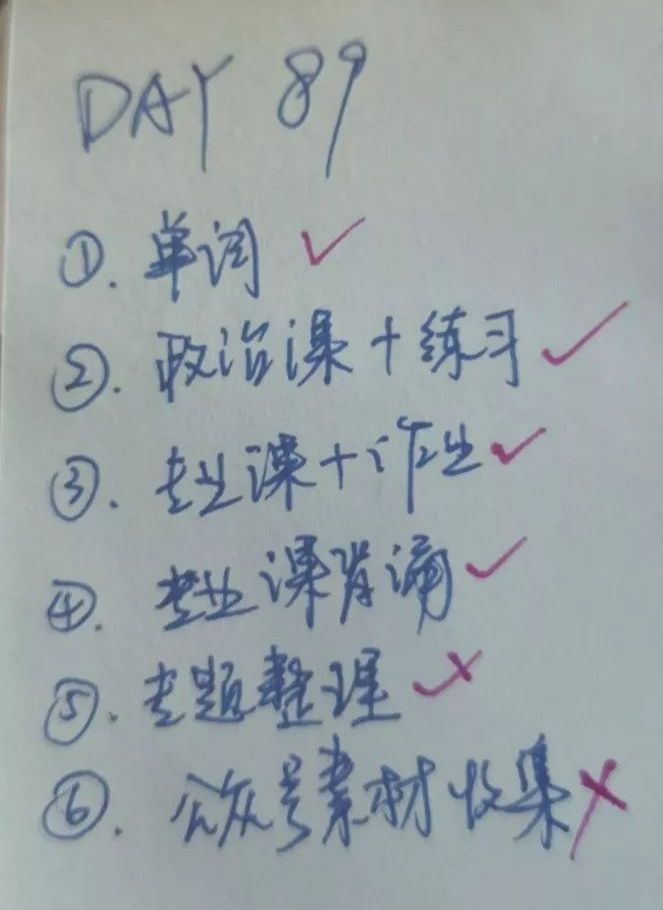 DAY 89
①. 单词 ✓
②. 政治课+练习 ✓
③. 专业课+作业 ✓
④. 专业课背诵 ✓
⑤. 专题整理
⑥. 公众号素材收集 ✗